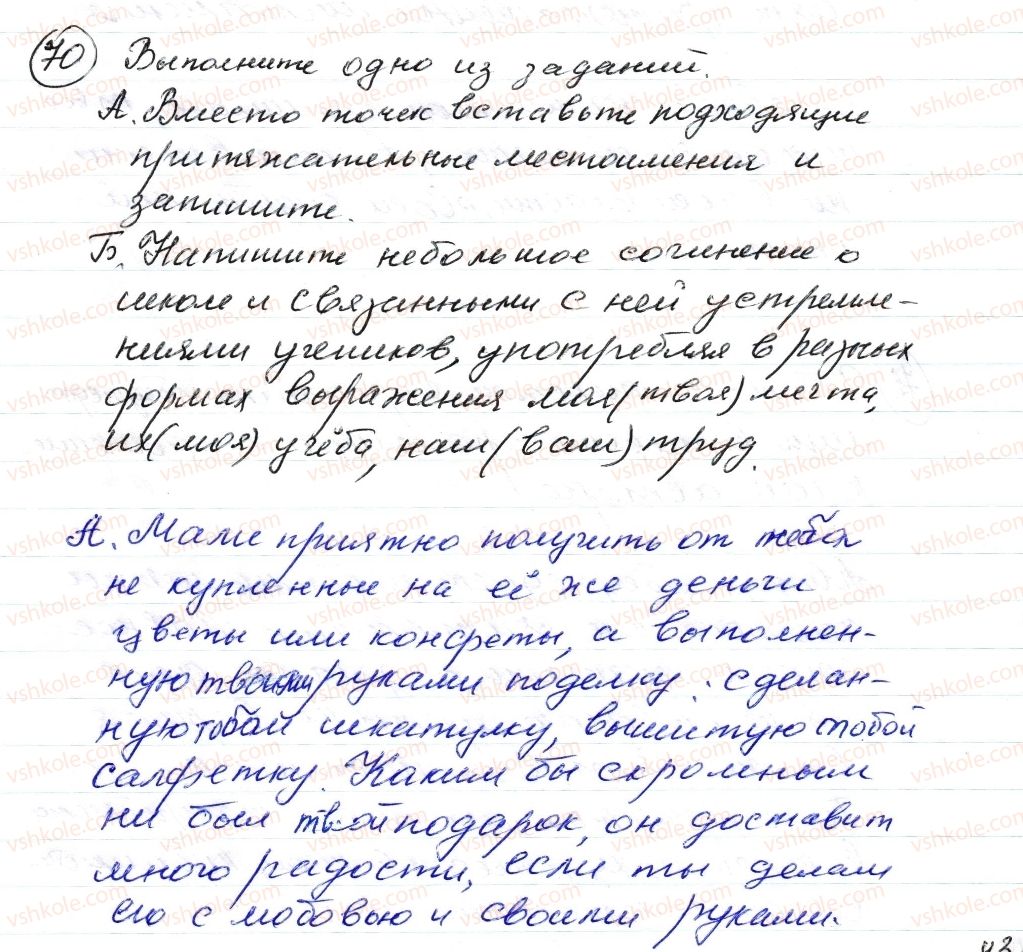 70 Выполните одно из заданий.
А. Вместо точек вставьте подходящие
притяжательные местоимения и
запишите.
Б. Напишите небольшое сочинение о
школе и связанными с ней устремле-
ниями учеников, употребляя в разных
формах выражения моя (твоя) мечта,
их (моя) учёба, наш (ваш) труд.
А. Маме приятно получить от тебя
не купленные на её же деньги
цветы или конфеты, а выполнен-
ную твоими руками поделку: сделан-
ную тобой шкатулку, вышитую тобой
салфетку. Каким бы скромным
ни был твой подарок, он доставит
много радости, если ты делал
его с любовью и своими руками.
42